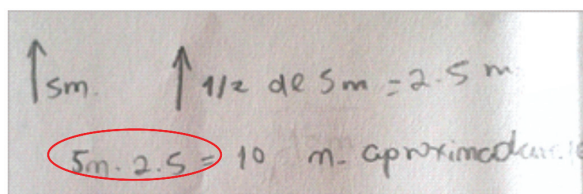 5m. 1/2 de 5m = 2.5 m
5m. 2.5 = 10 m. aproximadam